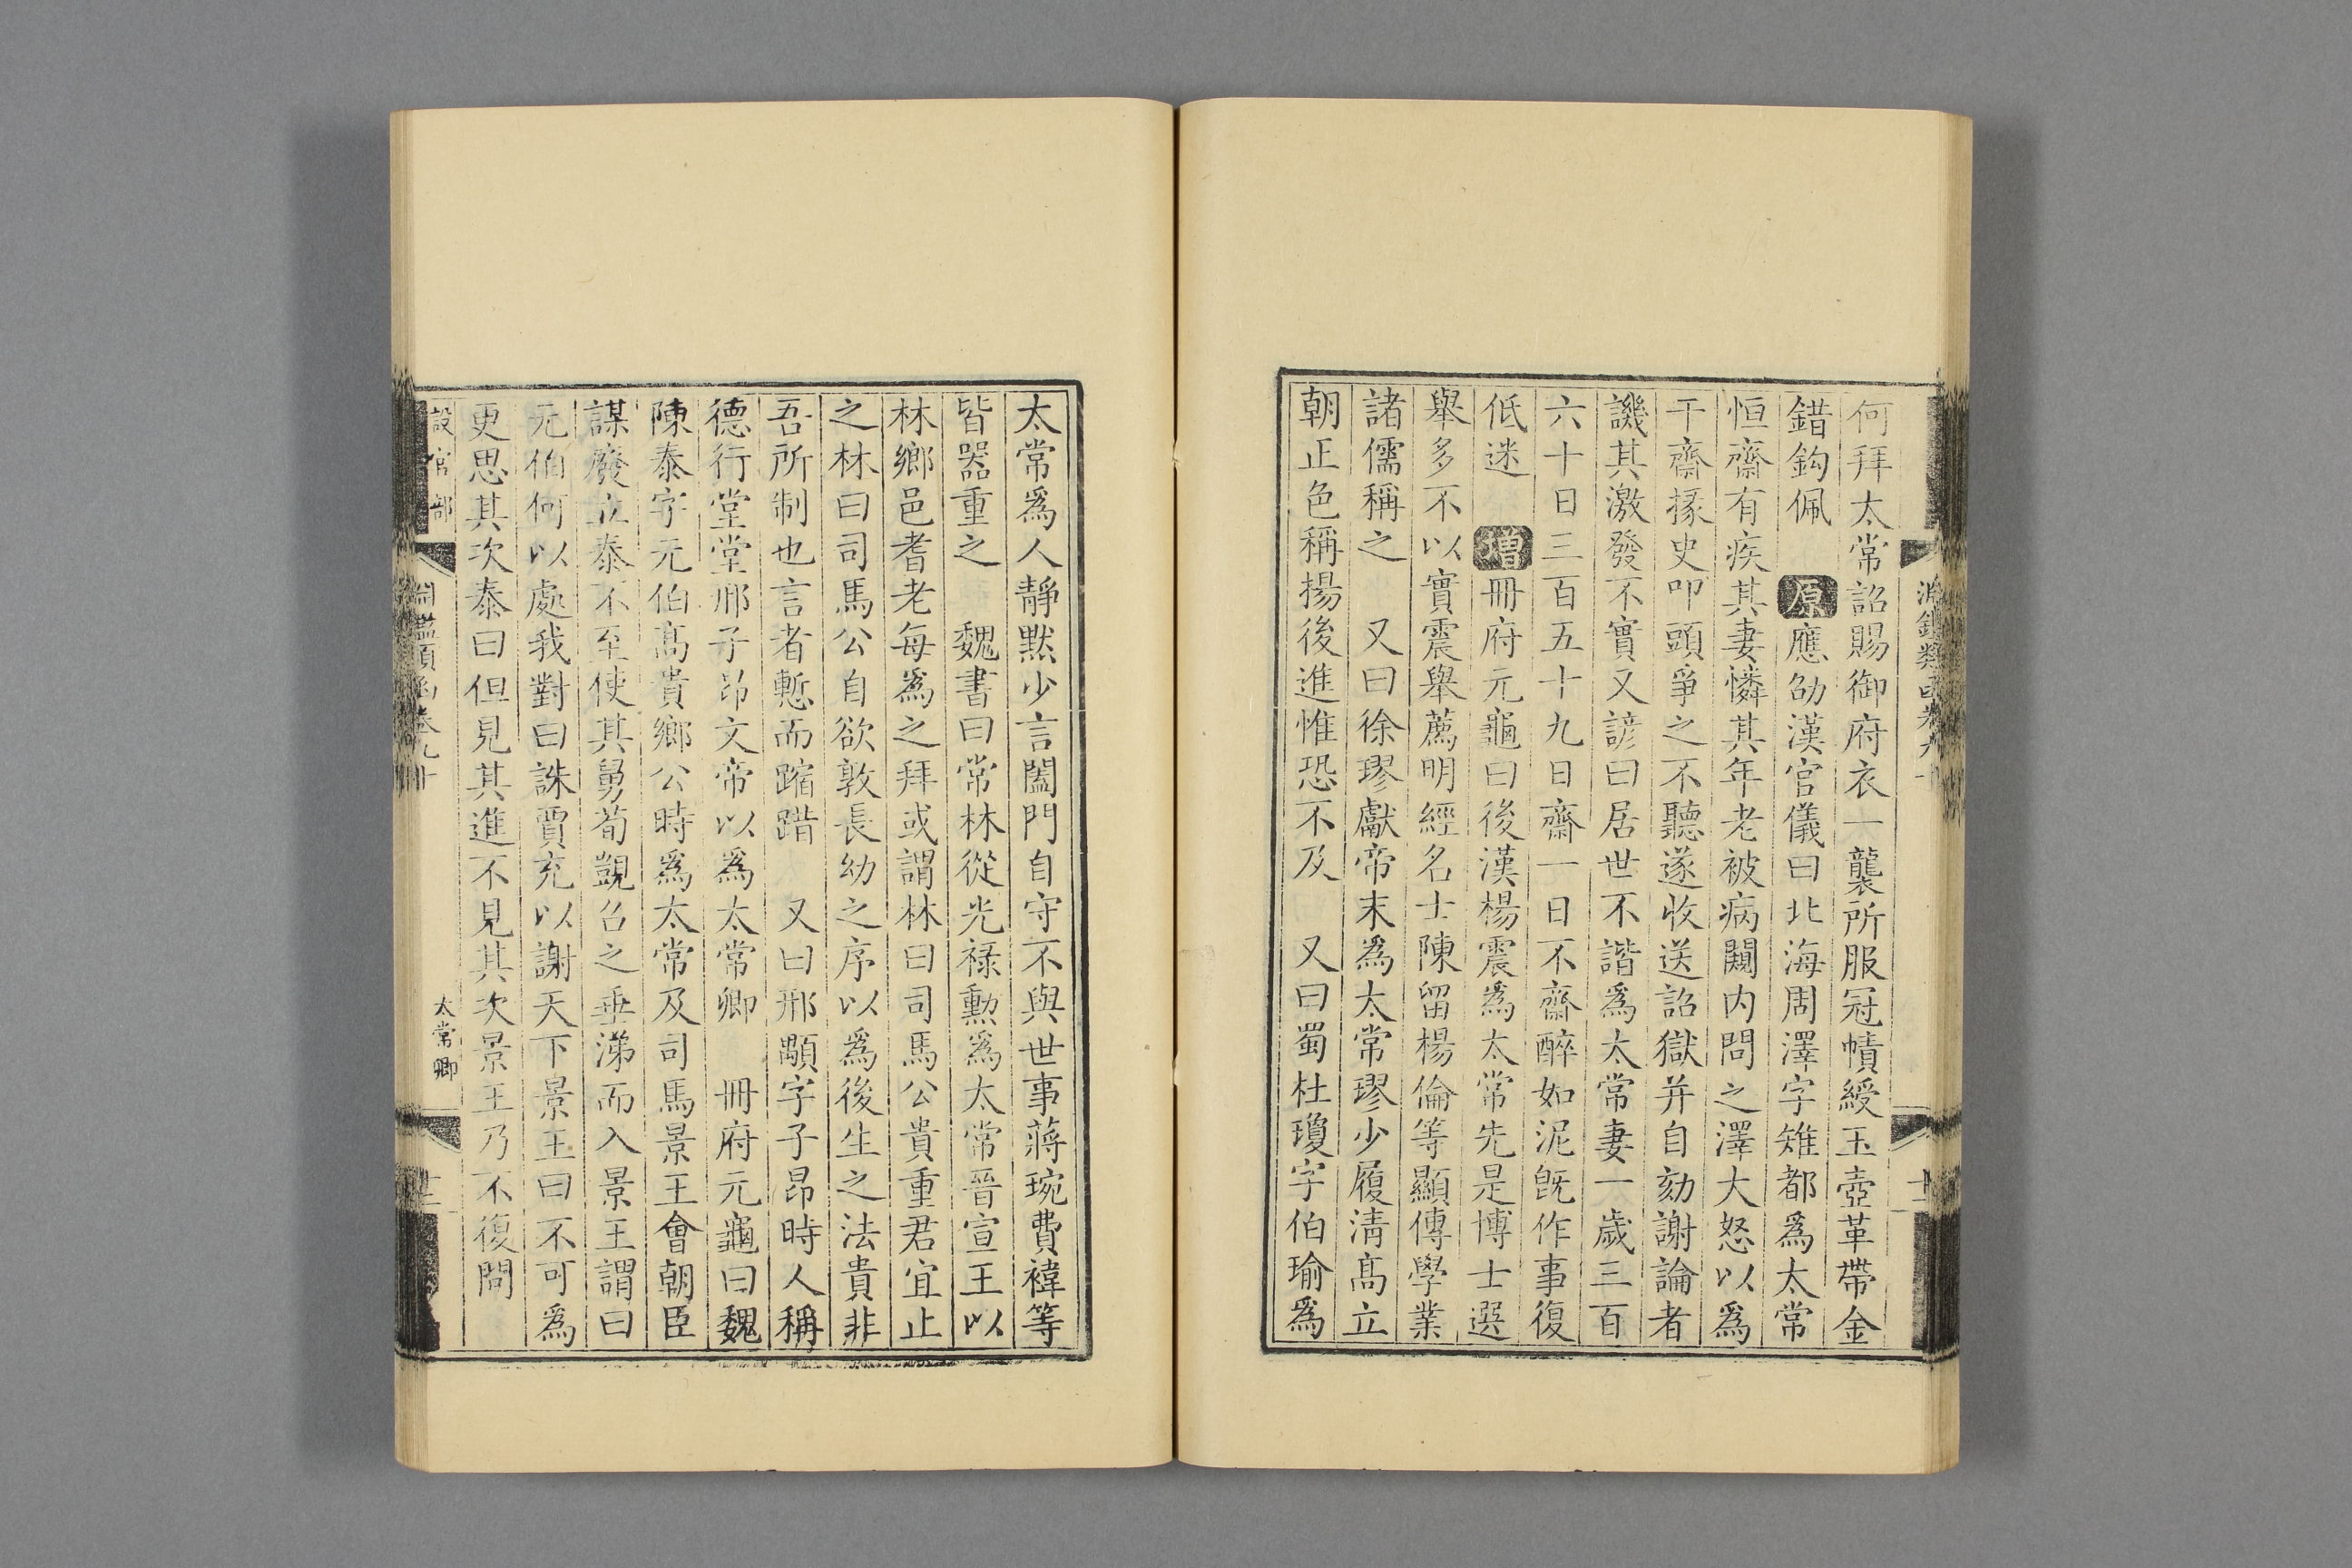 何拜太常詔賜御府衣一襲所服冠幘綬玉壺革帶金
錯鈎佩　原應劭漢官儀曰北海周澤字雉都爲太常
恒齋有疾其妻憐其年老被病闚内問之澤大怒以爲
干齋掾史叩頭爭之不聽遂收送詔獄并自劾謝論者
譏其激發不實又諺曰居世不諧爲太常妻一歲三百
六十日三百五十九日齋一日不齋醉如泥旣作事復
低迷　增冊府元龜曰後漢楊震爲太常先是博士選
舉多不以實震舉薦明經名士陳留楊倫等顯傳學業
諸儒稱之　又曰徐璆獻帝末爲太常璆少履淸髙立
朝正色稱揚後進惟恐不及　又曰蜀杜瓊字伯瑜爲
太常爲人靜默少言闔門自守不與世事蔣琬費褘等
皆器重之　魏書曰常林從光祿勳爲太常晉宣王以
林鄉邑耆老每爲之拜或謂林曰司馬公貴重君宜止
之林曰司馬公自欲敦長幼之序以爲後生之法貴非
吾所制也言者慙而蹜踖　又曰邢顒字子昂時人稱
德行堂堂邢子昂文帝以爲太常卿　冊府元龜曰魏
陳泰字元伯髙貴鄉公時爲太常及司馬景王會朝臣
謀廢立泰不至使其舅荀顗召之垂涕而入景王謂曰
元伯何以處我對曰誅賈充以謝天下景王曰不可爲
更思其次泰曰但見其進不見其次景王乃不復問
設官部
淵鑑類函卷九十
太常卿